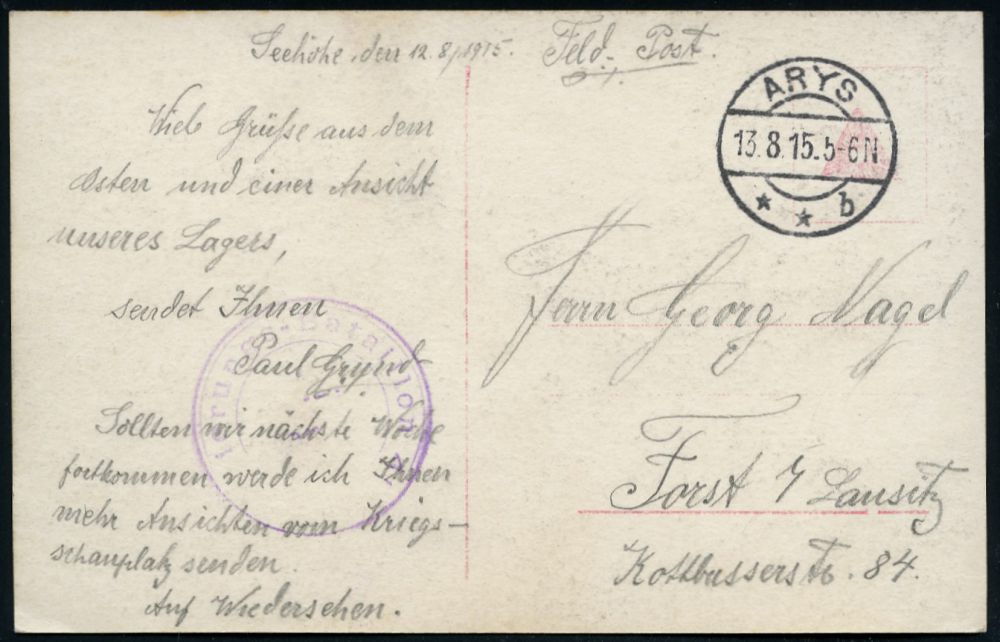 Seehöhe, den 12.8.1915.
Feld-Post.
ARYS
13.8.15.5-6N
* * b
Viele Grüsse aus dem
Osten und einer Ansicht
unseres Lagers,
sendet Ihnen
Paul Grynd
Sollten wir nächste Woche
fortkommen werde ich Ihnen
mehr Ansichten vom Kriegs-
schauplatz senden.
Auf Wiedersehen.
ierungs-Bataillon
Herrn Georg Nagel
Forst i/ Lausitz
Kottbusserstr. 84.